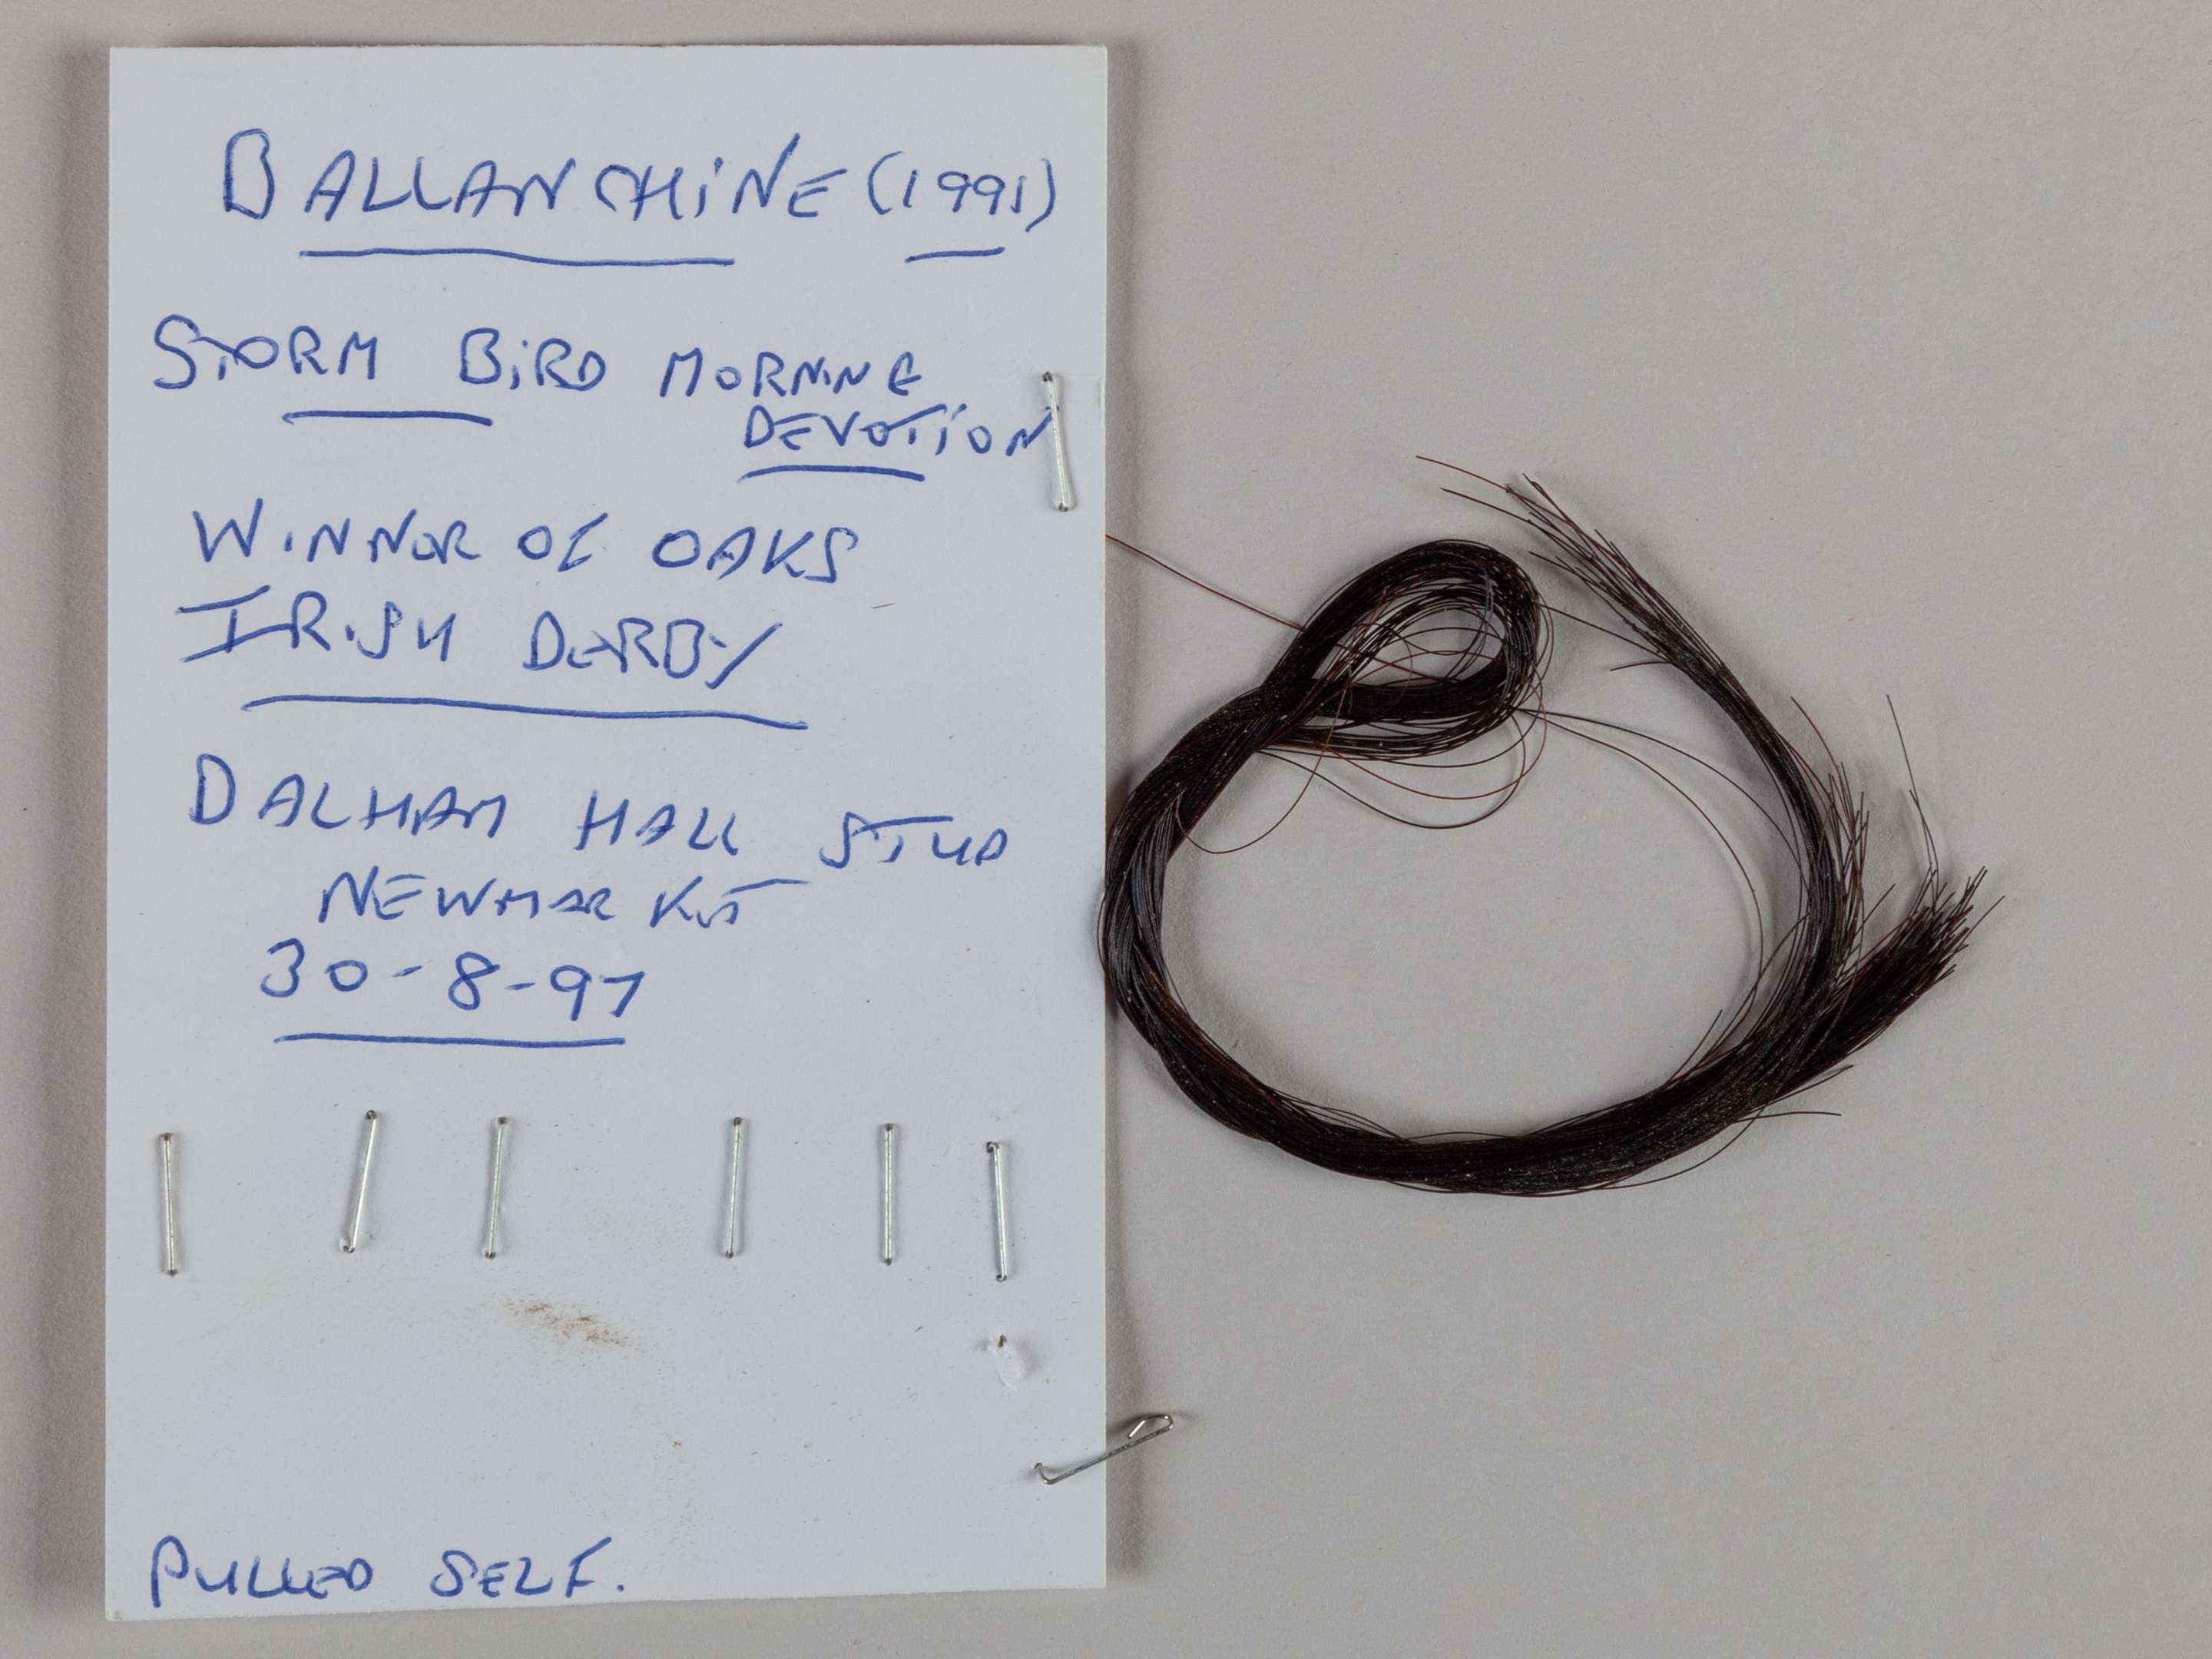 BALLANCHINE (1991)
STORM BIRD MORNING
DEVOTION
WINNOR OF OAKS
IRISH DERBY
DALHAM HALL STUD
NEWMARKET
30-8-97
PULLED SELF.